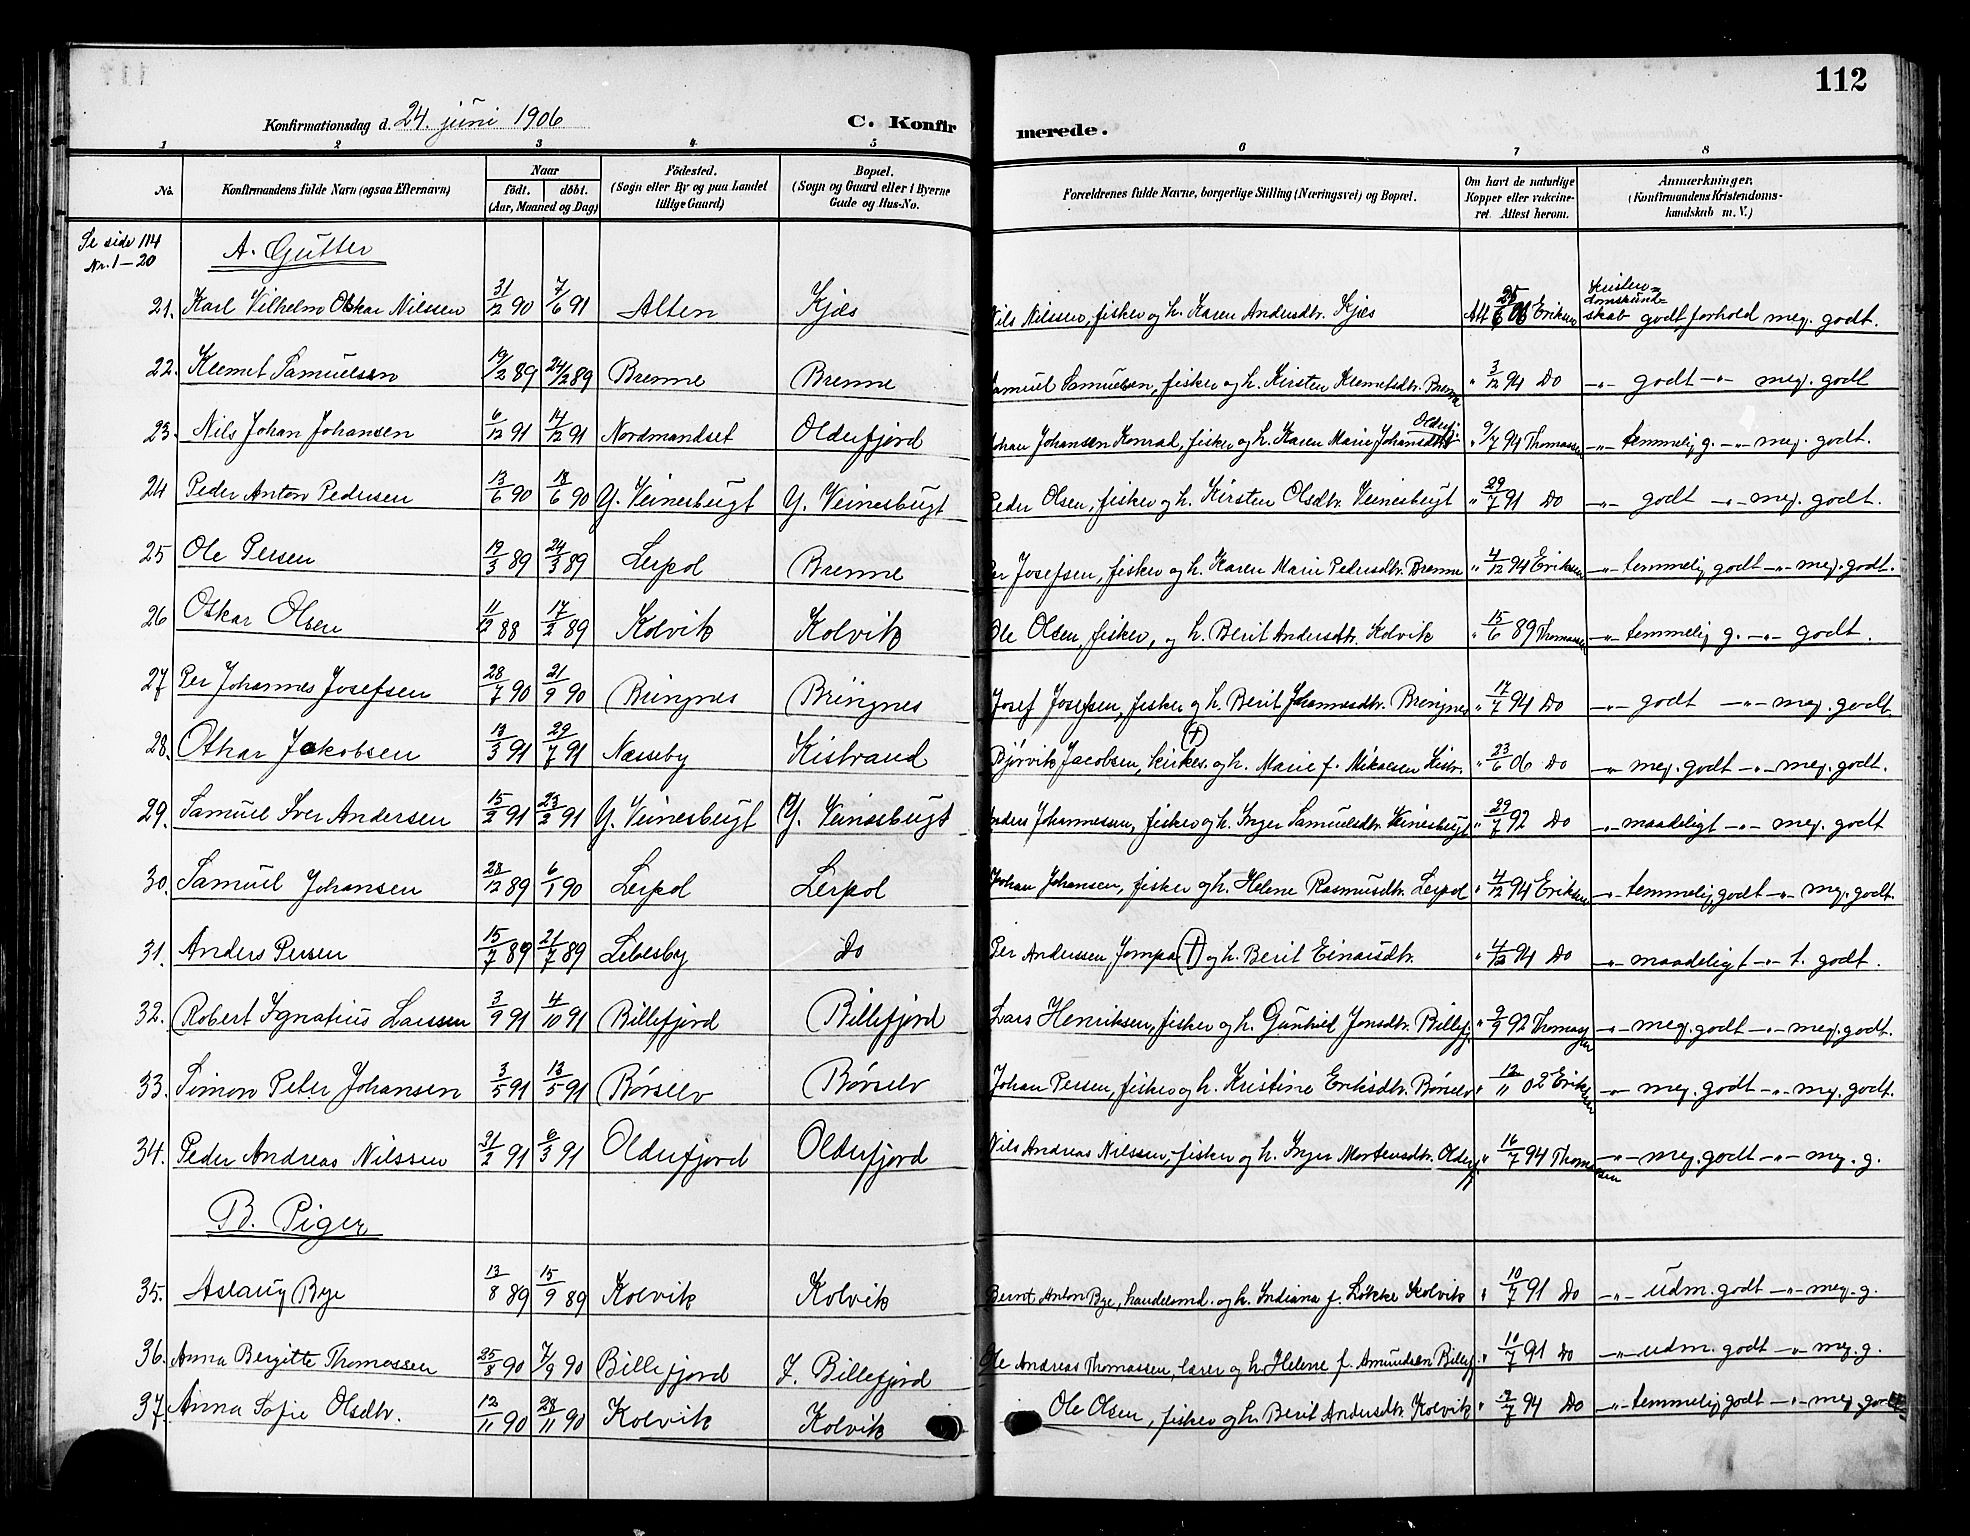 112
Konfirmationsdag d. 24. juni 1906 C. Konfirmerede.
1 2 3 4 5 6 7 8
No. Konfirmandens fulde Navn (ogsaa Efternavn) Naar født. døbt. (Aar, Maaned og Dag) Fødested. (Sogn eller By og paa Landet tillige Gaard) Bopæl. (Sogn og Gaard eller i Byerne Gade og Hus-No. Forældrenes fulde Navne, borgerlige Stilling (Næringsvei) og Bopæl. Om havt de naturlige Kopper eller vakcineret. Attest herom. Anmærkninger. (Konfirmandens Kristendomskundskab m. V.)
Se side 114
Nr. 1-20
A. Gutter
21. Karl Vilhelm Oskar Nilssen 31/12 90 7/6 91 Alten Kjæs Nils Nilssen, fisker og h. Karen Andersdtr. Kjæs Att 25/6 06 Eriksen Kristendomskundskab godt, forhold meg. godt.
22. Klemet Samuelsen 19/2 89 24/2 89 Brenne Brenne Samuel Samuelsen, fisker og h. Kirsten Klemetsdtr. Brenne " 3/12 94 Do -"- godt -"- meg. godt
23. Nils Johan Johansen 6/12 91 14/12 91 Nordmandset Olderfjord Johan Johansen Konral, fisker og h. Karen Marie Johansdtr. Olderfj. " 9/7 94 Thomassen -"- temmelig g. -"- meg. godt.
24 Peder Anton Pedersen 13/6 90 18/6 90 Y. Veinesbugt Y. Veinesbugt Peder Olsen, fisker og h. Kirsten Olsdtr. Veinesbugt " 29/7 91 Do -"- godt -"- meg. godt.
25 Ole Persen 19/3 89 24/3 89 Lerpol Brenne Per Josefsen, fisker og h. Karen Marie Pedersdtr. Brenne " 4/12 94 Eriksen -"- temmelig godt -"- meg. godt.
26 Oskar Olsen 11/12 88 17/2 89 Kolvik Kolvik Ole Olsen, fisker, og h. Berit Andersdtr. Kolvik " 15/6 89 Thomassen -"- temmelig g. -"- godt.
27 Per Johannes Josefsen 28/7 90 21/9 90 Bringnes Bringnes Josef Josefsen, fisker og h. Berit Johannesdtr. Bringnes " 17/7 94 Do -"- godt -"- meg. godt
28. Oskar Jakobsen 13/3 91 29/7 91 Næsseby Kistrand Bjørvik Jacobsen, kirkes. og h. Marie f. Mikalsen Kistr. " 23/6 06 Do -"- meg. godt -"- meg. godt.
29. Samuel Iver Andersen 15/2 91 23/2 91 Y. Veinesbugt Y. Veinesbugt Anders Johannessen, fisker og h. Inger Samuelsdtr. Veinesbugt " 29/7 92 Do -"- maadeligt -"- meg. godt
30. Samuel Johansen 28/12 89 6/1 90 Lerpol Lerpol Johan Johansen, fisker og h. Helene Rasmusdtr. Lerpol " 4/12 94 Eriksen -"- temmelig godt -"- meg. godt.
31. Anders Persen 15/7 89 21/7 89 Lebesby Do Per Anderssen Jompa (†) og h. Berit Einarsdtr. " 4/12 94 Do -"- maadeligt -"- t. godt.
32. Robert Ignatius Larssen 3/9 91 4/10 91 Billefjord Billefjord Lars Henriksen, fisker og h. Gunhild Jonsdtr. Billefj. " 9/9 92 Thomassen -"- meg. godt -"- meg. godt.
33. Simon Peter Johansen 3/5 91 13/5 91 Børselv Børselv Johan Persen, fisker og h. Kristine Eriksdtr. Børselv " 12/11 02 Eriksen -"- meg. godt -"- meg. godt.
34. Peder Andreas Nilssen 21/2 91 6/3 91 Olderfjord Olderfjord Nils Andreas Nilssen, fisker og h. Inger Mortensdtr. Olderf. " 16/7 94 Thomassen -"- meg. godt -"- meg. g.
B. Piger
35. Aslaug Bye 13/8 89 15/9 89 Kolvik Kolvik Bernt Anton Bye, handelsmd. og h. Indiana f. Løkke Kolvik " 10/7 91 Do -"- udm. godt -"- meg. g.
36. Anna Bergitte Thomassen 25/8 90 7/9 90 Billefjord I. Billefjord Ole Andreas Thomassen, lærer og h. Helene f. Amundsen Billef. " 10/7 91 Do -"- udm. godt -"- meg. g.
37. Anna Sofie Olsdtr. 12/11 90 28/11 90 Kolvik Kolvik Ole Olsen, fisker og h. Berit Andersdtr. Kolvik " 12/7 94 Do -"- temmelig godt -"- meg. godt.